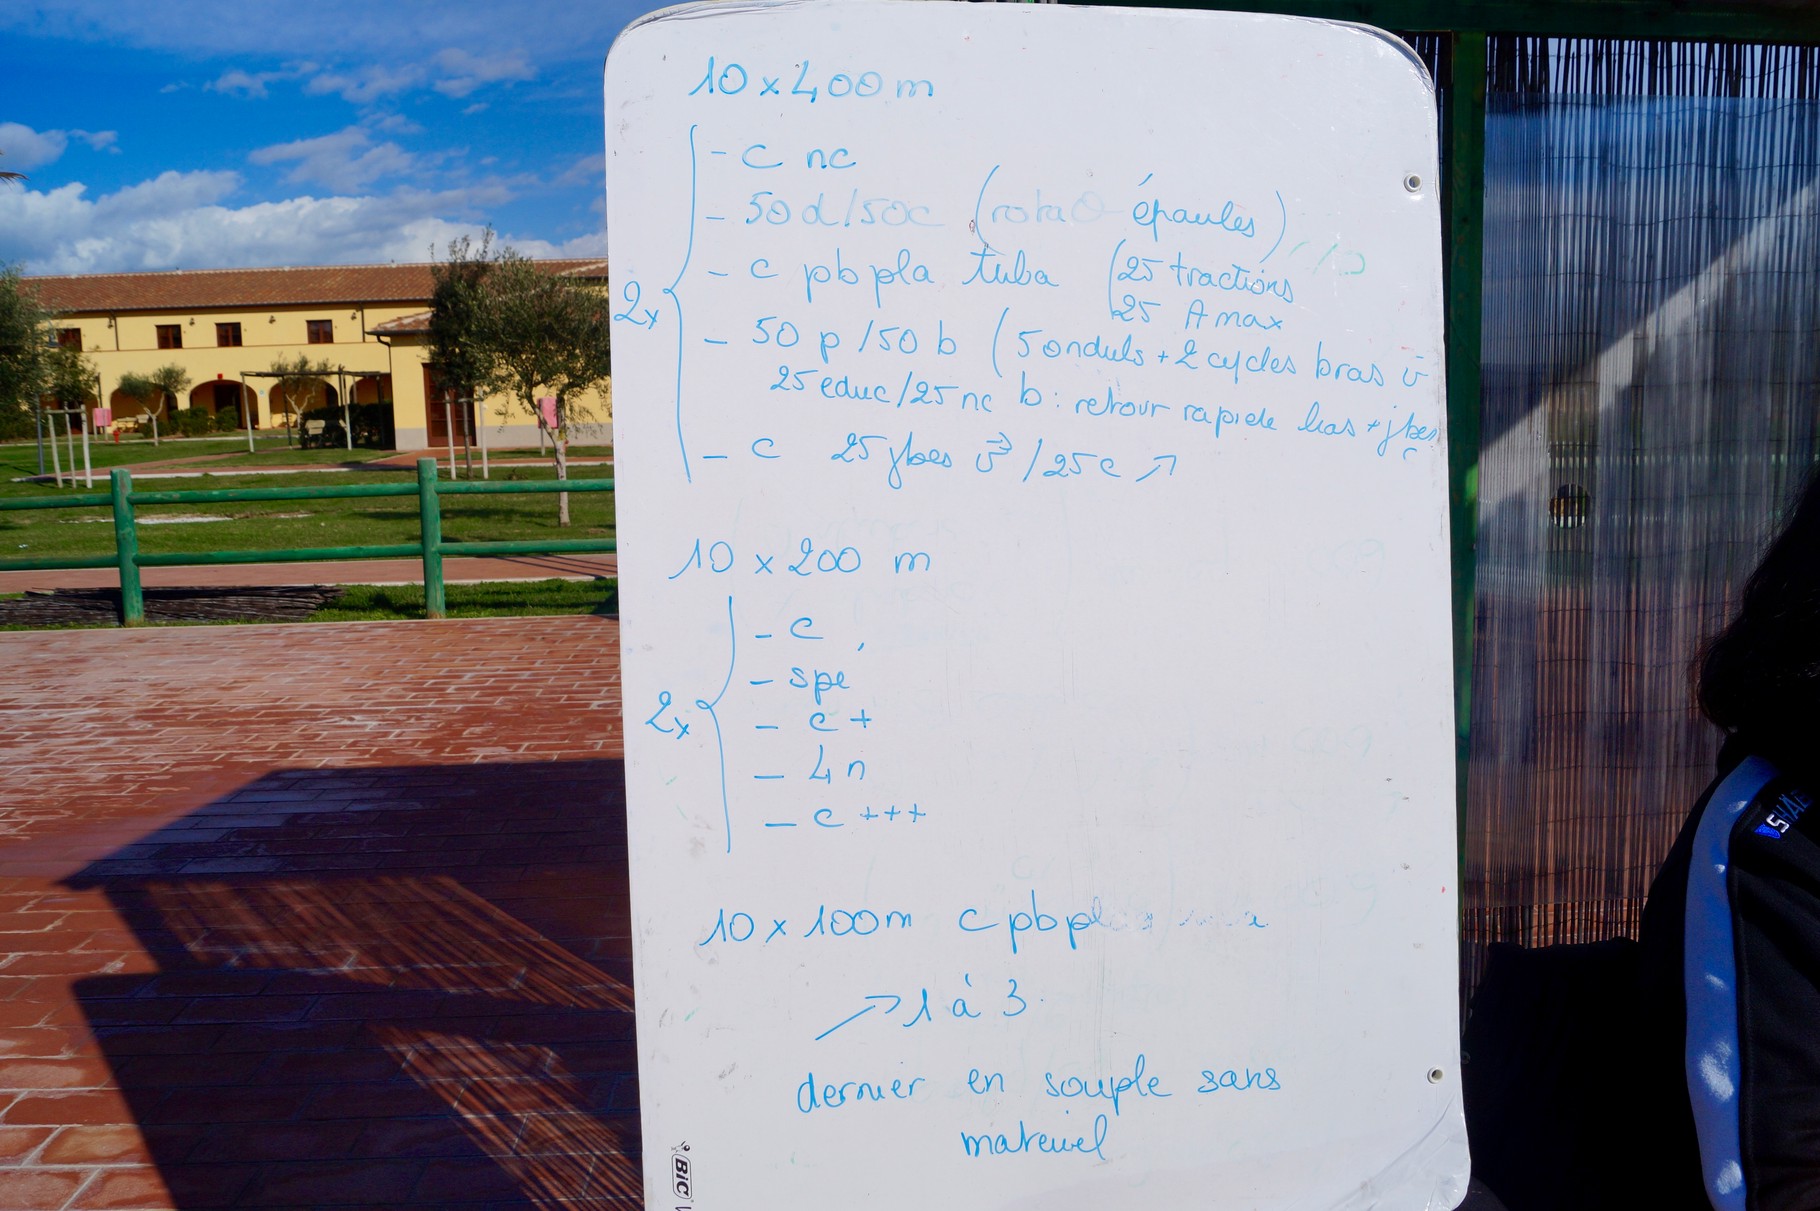 10 x 400 m
2x
- c nc
- 50 d/50c (rota épaules)
- c pb pla tuba (25 tractions
25 A max
- 50 p /50 b (5 onduls + 2 cycles bras v
25 educ/25 nc b: retour rapide bras + jbes
c
- c 25 jbes v /25c ↗
10 x 200 m
2x
- c
- spé
- c +
- 4n
- c +++
10 x 100m c pb pla
↗ 1 à 3
dernier en souple sans
materiel
BIC
SHA